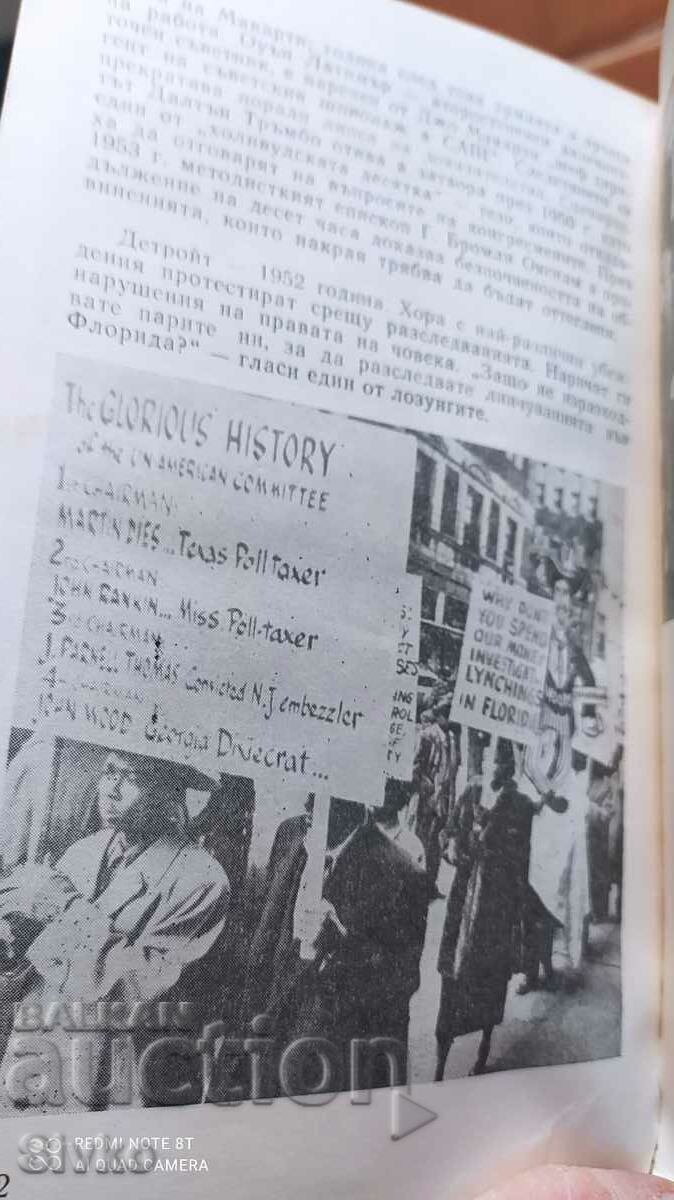 на Макарти,
на работа. Оуън Латимър — 
точен съветник, е наречен от Джо Макарти „шеф
гент на съветския шпионаж в САЩ“. Следствието се
прекратява поради липса на доказателства. Сценарис-
тът Далтън Тръмбо отива в затвора през 1950 г. като
един от „холивудската десятка“ — тези, които отказа-
ха да отговарят на въпросите на конгресмените. През
1953 г. методисткият епископ Г. Бромли Оксман в про-
дължение на десет часа доказва безпочвеността на об-
виненията, които накрая трябва да бъдат оттеглени.
Детройт — 1952 година Хора с най-различни убеж-
дения протестират срещу разследванията. Наричат ги
нарушения на правата на човека. „Защо не изразход-
вате парите ни, за да разследвате линчуванията във
Флорида?“ — гласи един от лозунгите.
The GLORIOUS HISTORY
of the UN-AMERICAN COMMITTEE
1st CHAIRMAN:
MARTIN DIES... Texas Poll taxer
2nd CHAIRMAN
JOHN RANKIN... Miss Poll-taxer
3rd CHAIRMAN
J. PARNELL THOMAS Convicted N.J embezzler
4 CHAIRMAN
JOHN WOOD Georgia Dixiecrat...
WHY DON'T
YOU SPEND
OUR MONEY
INVESTIGAT
LYNCHINGS
IN FLORID
BALKAN
auction
Sivko
REDMI NOTE 8T
AI QUAD CAMERA
2